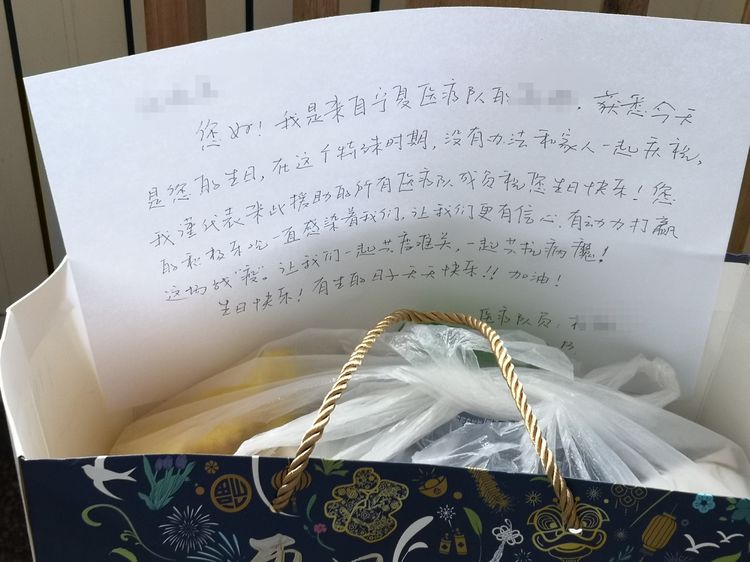 您好！我是来自宁夏医疗队的 ，获悉今天
是您的生日，在这个特殊时期，没有办法和家人一起庆祝，
我谨代表来此援助的所有医疗队成员祝您生日快乐！您
的积极乐观一直感染着我们，让我们更有信心、有动力打赢
这场战"疫"。让我们一起共度难关，一起共抗病魔！
生日快乐！有生的日子天天快乐！！加油！
医疗队员：